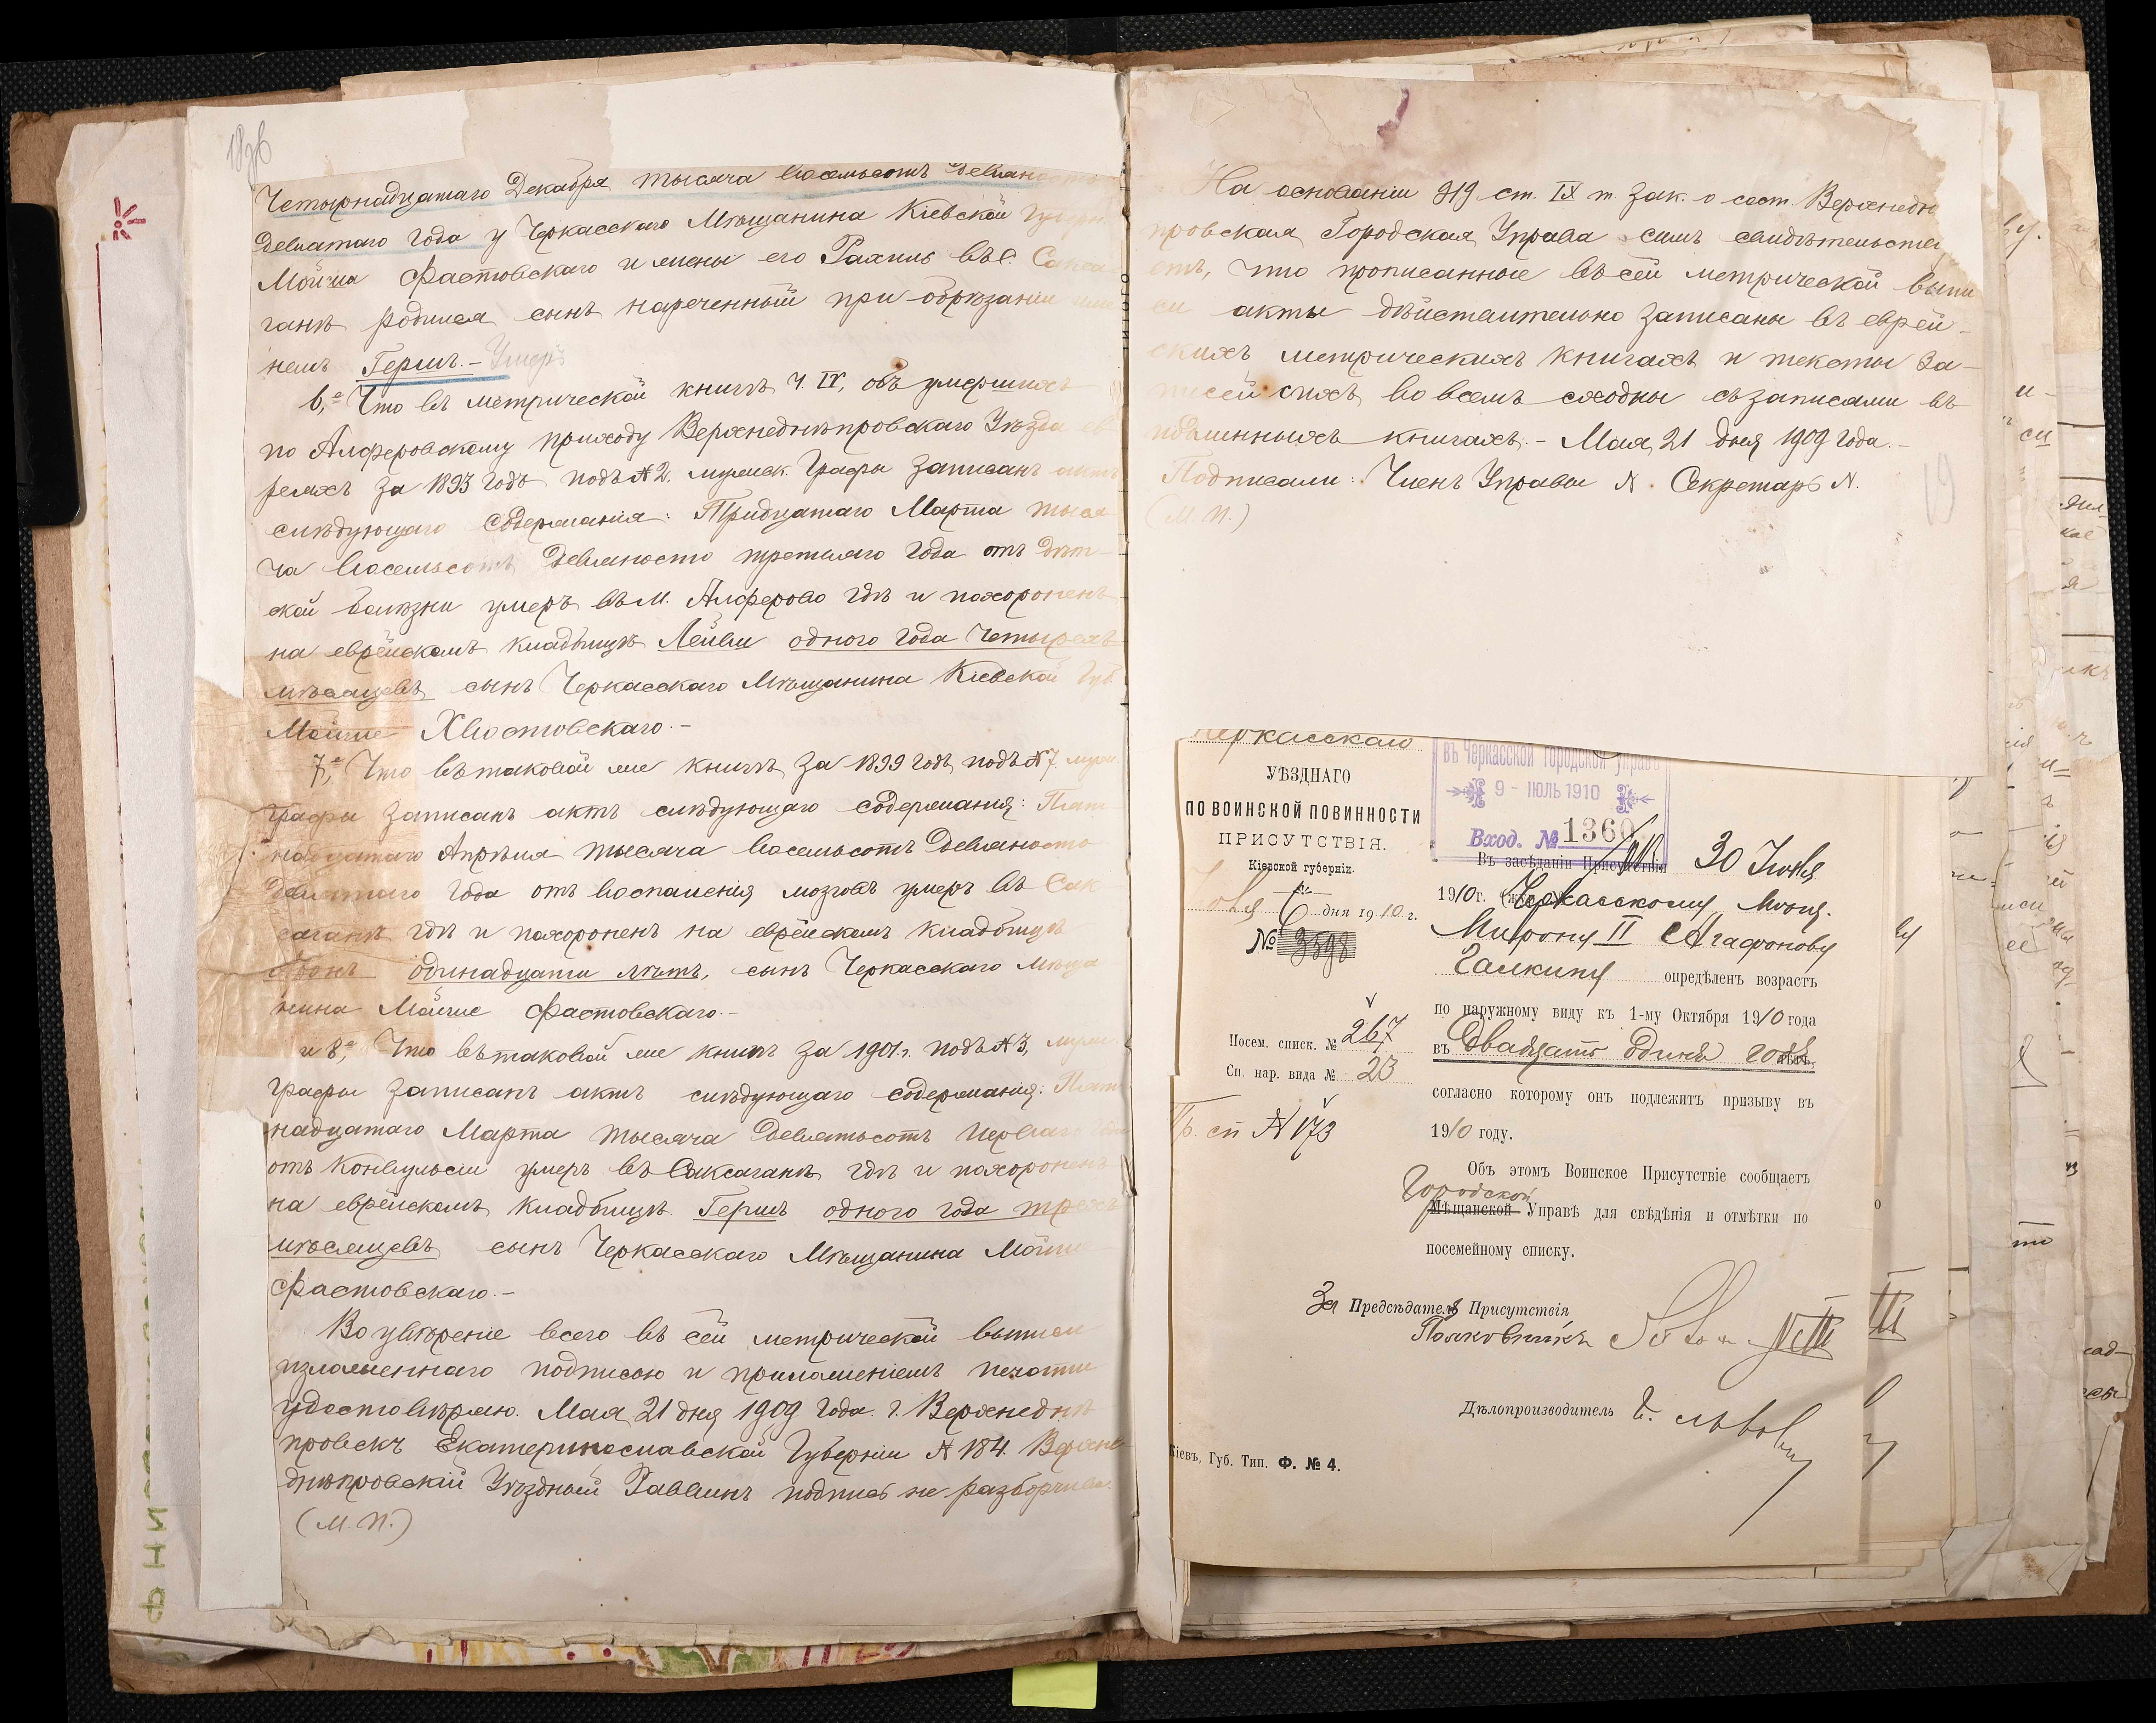 18об
Четырнадцатаго Декабря тысяча восемьсотъ девяносто
девятаго года у Черкасскаго Мѣщанина Кіевской Губерніи
Мойша Фастовскаго и жены его Рахиль въ с. Сакса
ганѣ родился сынъ нареченный при обрѣзаніи име
немъ Гершъ. - Умеръ
6,е Что въ метрической книгѣ ч. IV, объ умершихъ
по Алферовскому приходу Верхнеднѣпровскаго Уѣзда ев
реяхъ за 1893 годъ подъ № 2. мужеск. графы записанъ актъ
слѣдующаго содержанія: Тридцатаго Марта тыся
ча восемьсотъ девяносто третьяго года отъ дѣт-
ской болѣзни умеръ въ М. Алферово гдѣ и похороненъ
на еврейскомъ кладбищѣ Лейви одного года четырехъ
мѣсяцевъ сынъ Черкасскаго Мѣщанина Кіевской Губ.
Мойше Хвостовскаго. -
7,е Что въ таковой же книгѣ за 1899 годъ подъ № 7 муж.
графы записанъ актъ слѣдующаго содержанія: Пят-
надцатаго Апрѣля тысяча восемьсотъ девяносто
девятаго года отъ воспаленія мозговъ умеръ въ Сак
саганѣ гдѣ и похороненъ на еврейскомъ кладбищѣ
одинадцати лѣтъ, сынъ Черкасскаго Мѣща
нина Мойше Фастовскаго. -
и 8,е Что въ таковой же книгѣ за 1901 г. подъ № 3, муж.
графы записанъ актъ слѣдующаго содержанія: Пят
надцатаго Марта тысяча девятьсотъ перваго года
отъ конвульсіи умеръ въ Саксаганѣ гдѣ и похороненъ
на еврейскомъ кладбищѣ Гершъ одного года трехъ
мѣсяцевъ сынъ Черкасскаго Мѣщанина Мойше
Фастовскаго. -
Во увѣреніе всего въ сей метрической выписи
изложеннаго подписью и приложеніемъ печати
удостовѣряю. Мая 21 дня 1909 года. г. Верхнеднѣ
провскъ Екатеринославской Губерніи № 184. Верхне
днѣпровскій Уѣздный Раввинъ подпись не разборчива.
(М. П.)
На основаніи 919 ст. IX т. Зак. о сост. Верхнедн
провская Городская Управа симъ свидѣтельству
етъ, что прописанные въ сей метрической выпи
си акты дѣйствительно записаны въ еврей-
скихъ метрическихъ книгахъ и тексты за-
писей сихъ во всемъ сходны съ записями въ
подлинныхъ книгахъ. - Мая 21 дня 1909 года. -
Подписали: Членъ Управы N. Секретарь N.
(М. П.)
19
Черкасскаго
УѢЗДНАГО
ПО ВОИНСКОЙ ПОВИННОСТИ
ПРИСУТСТВІЯ.
Кіевской губерніи.
Іюля 6 дня 1910 г.
№ 3598
Посем. списк. № 267
Сп. нар. вида № 23
Пр. сп № 173
Въ Черкасской городской управѣ
9 - ІЮЛЬ 1910
Вход. № 1360
Въ засѣданіи Присутствія 30 Іюня
1910 г. Черкасскому Мѣщ.
Мирону II Агафонову
Галкину опредѣленъ возрастъ
по наружному виду къ 1-му Октября 1910 года
въ Двадцать одинъ годъ лѣтъ,
согласно которому онъ подлежитъ призыву въ
1910 году.
Объ этомъ Воинское Присутствіе сообщаетъ
Городской
Мѣщанской Управѣ для свѣдѣнія и отмѣтки по
посемейному списку.
За Предсѣдателя Присутствія
Полковникъ
Дѣлопроизводитель
Кіевъ, Губ. Тип. Ф. № 4.